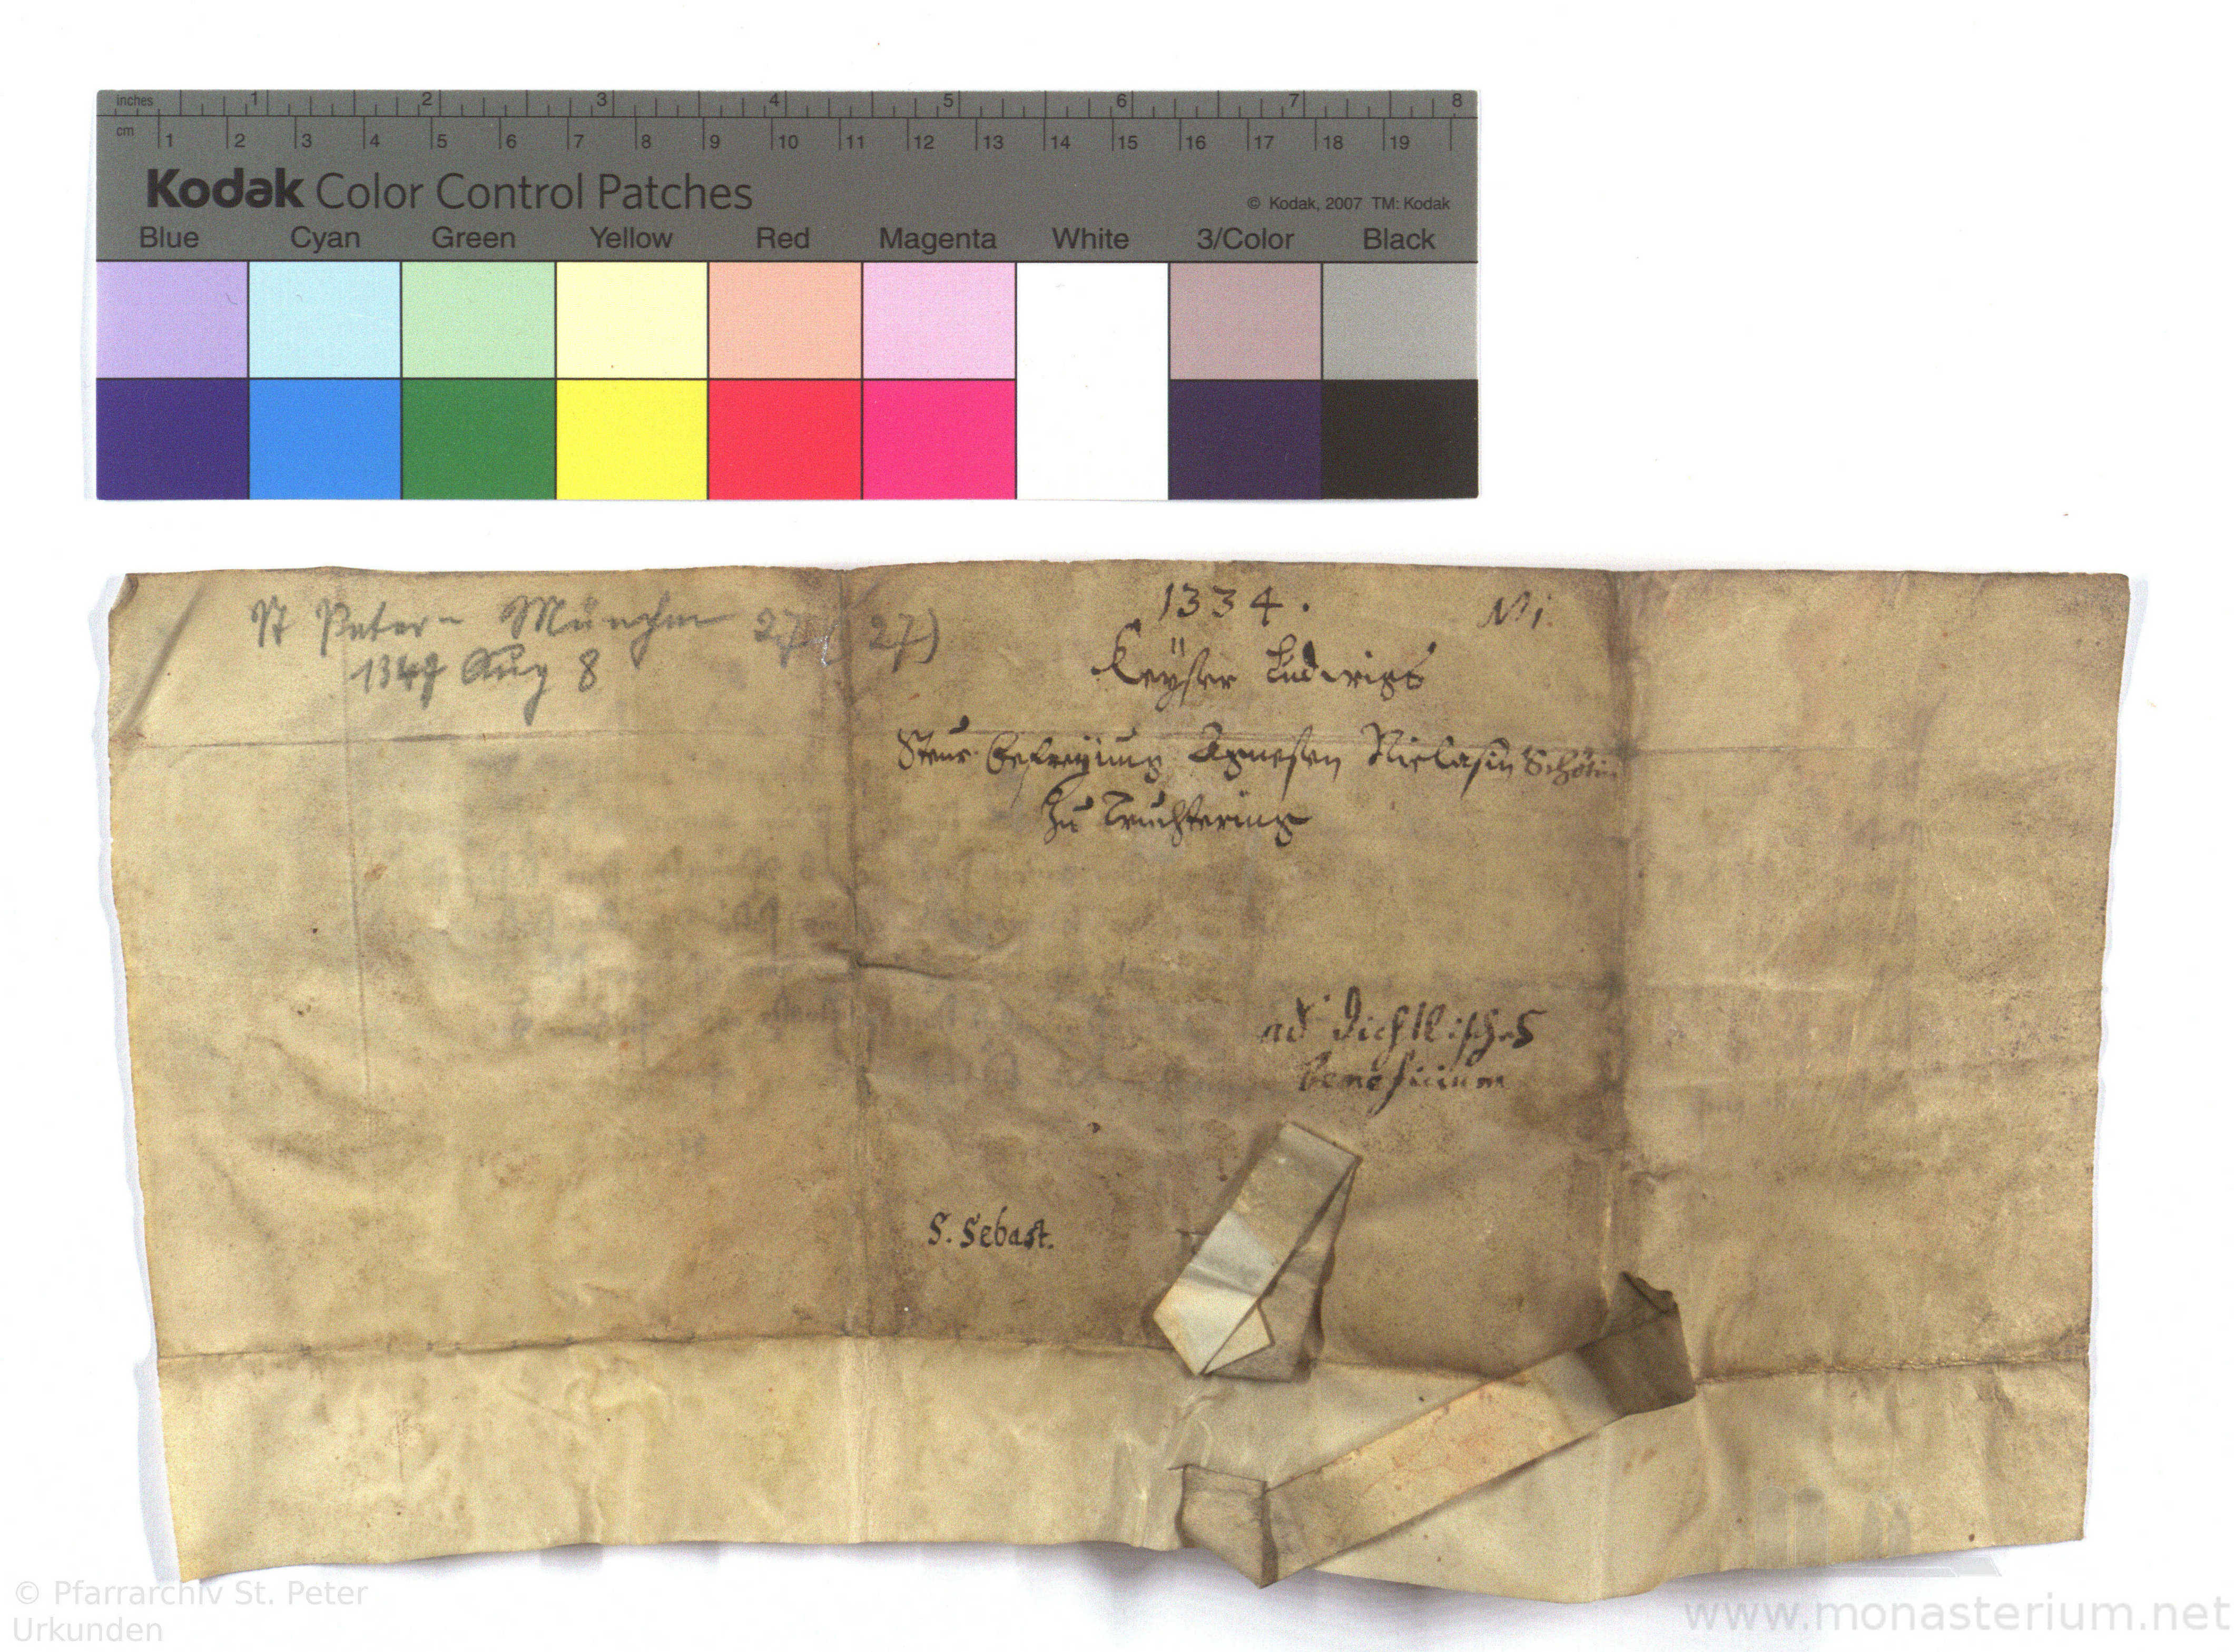 inches 1 2 3 4 5 6 7 8
cm 1 2 3 4 5 6 7 8 9 10 11 12 13 14 15 16 17 18 19
Kodak Color Control Patches
© Kodak, 2007 TM: Kodak
Blue Cyan Green Yellow Red Magenta White 3/Color Black
St Peter München 27 (27)
1347 Aug 8
1334.
N i.
Keyser Ludwigs
Steur Befreyung Agnesen Niclasin
Zu Truchtering
ad Dichtlisches
beneficium
S. Sebast.
© Pfarrarchiv St. Peter
Urkunden
www.monasterium.net